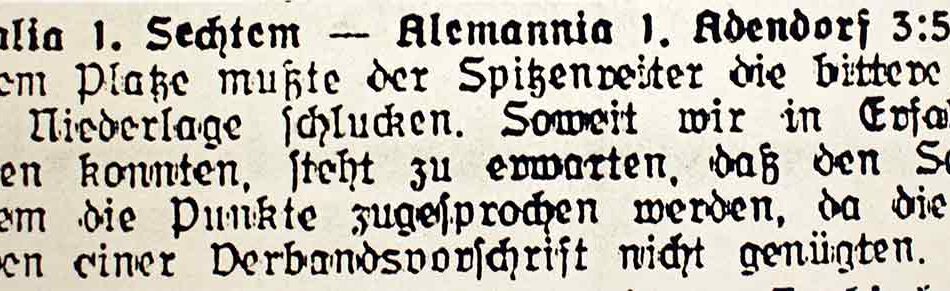 alia 1. Sechtem — Alemannia 1. Adendorf 3:5
em Platze mußte der Spitzenreiter die bittere
Niederlage schlucken. Soweit wir in Erfa
en konnten, steht zu erwarten, daß den Se
em die Punkte zugesprochen werden, da die
en einer Verbandsvorschrift nicht genügten.